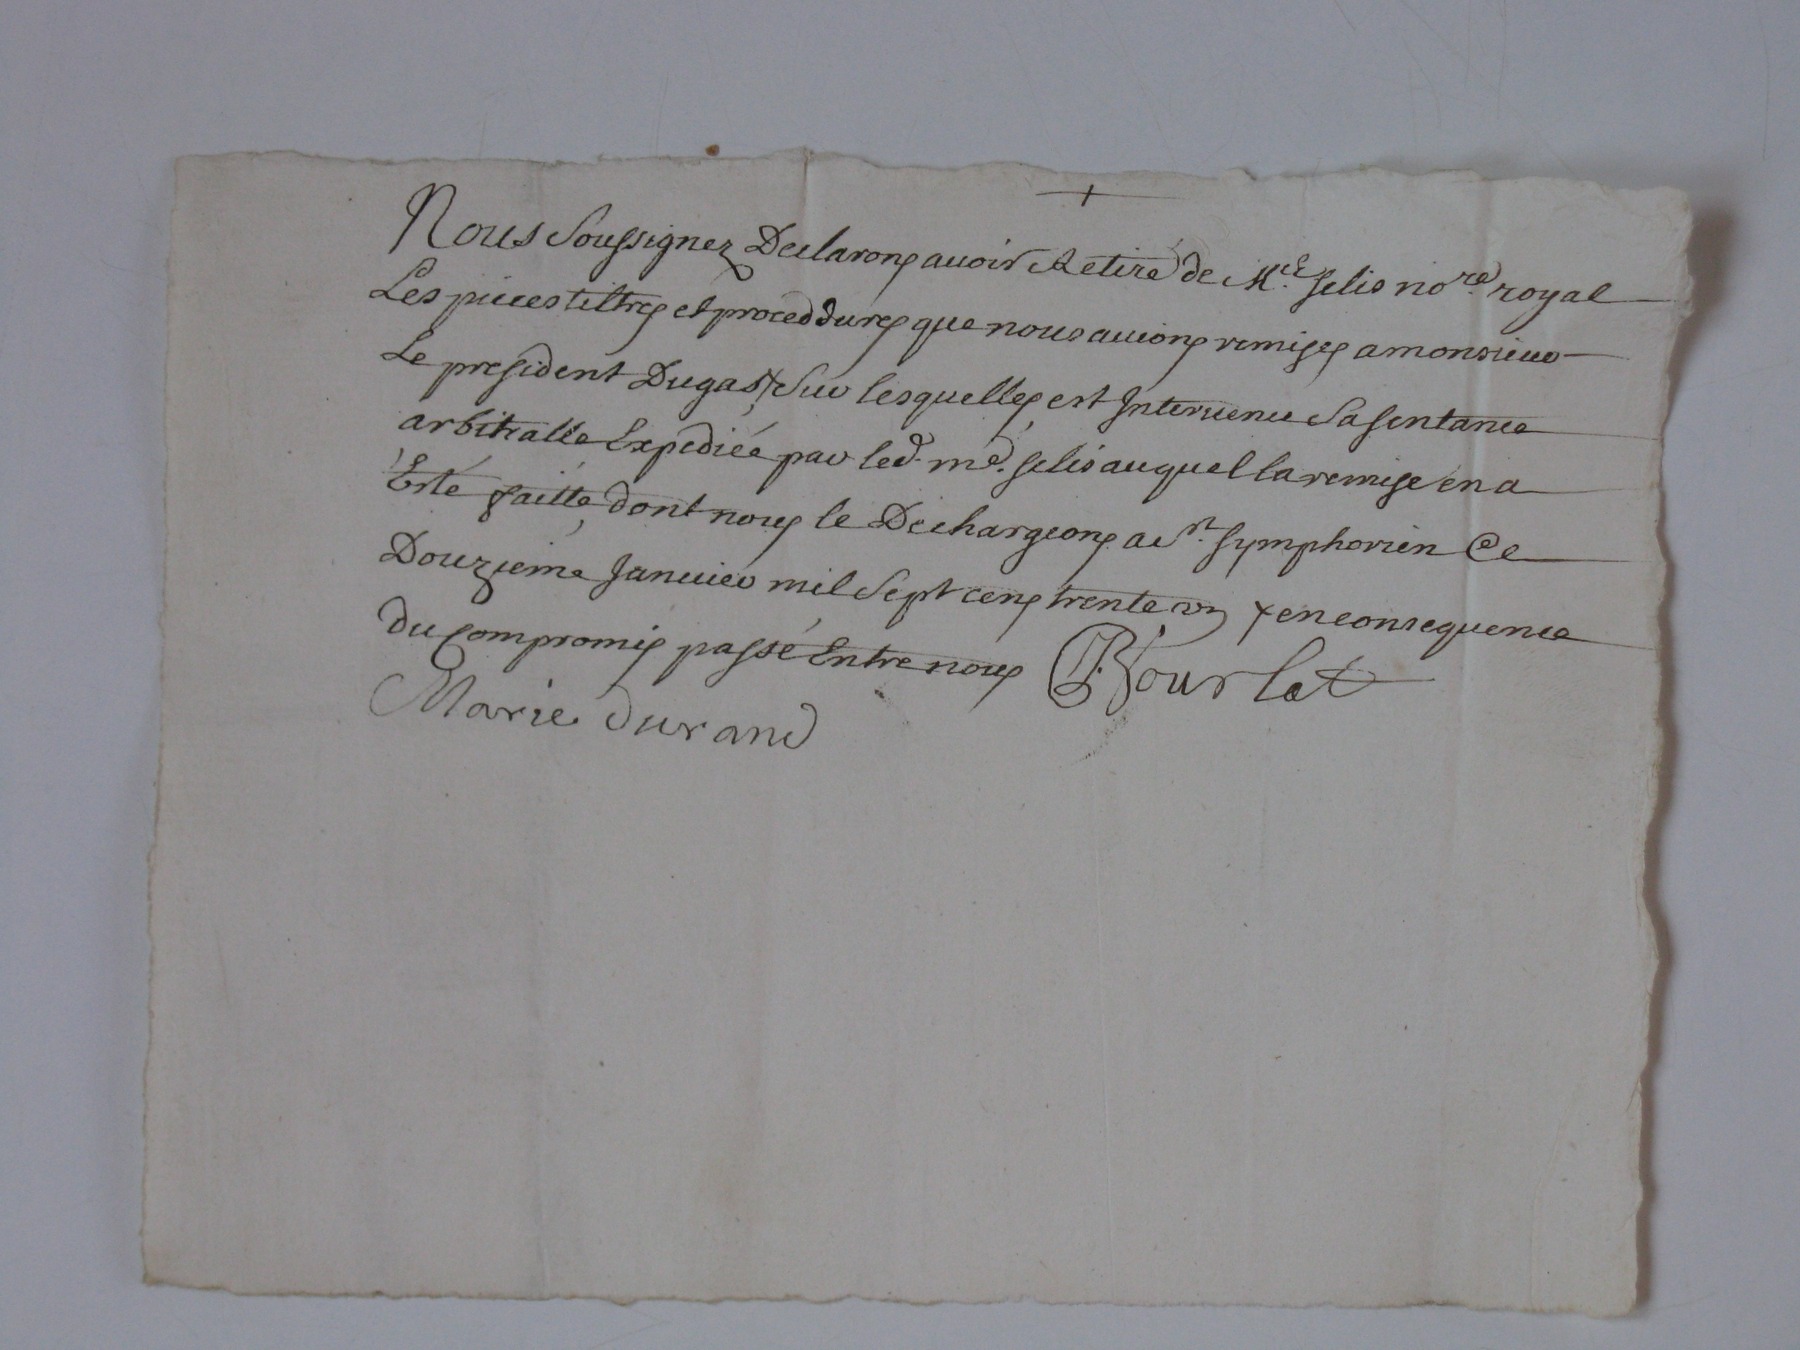 +
Nous Soussignez Declarons auoir Retiré de Mre. Gelis nore. royal
Les pieces tiltres et proceddures que nous auions remises a monsieur
Le president Dugas + Sur lesquelles est Interuenue Sa sentance
arbitralle Expediée par led. me. Gelis auquel la remise en a
Esté faitte, dont nous le Dechargeons a St. Symphorien Ce
Douzieme Januier mil Sept cens trente un + en consequence
du compromis passé Entre nous Bourlat
Marie durand